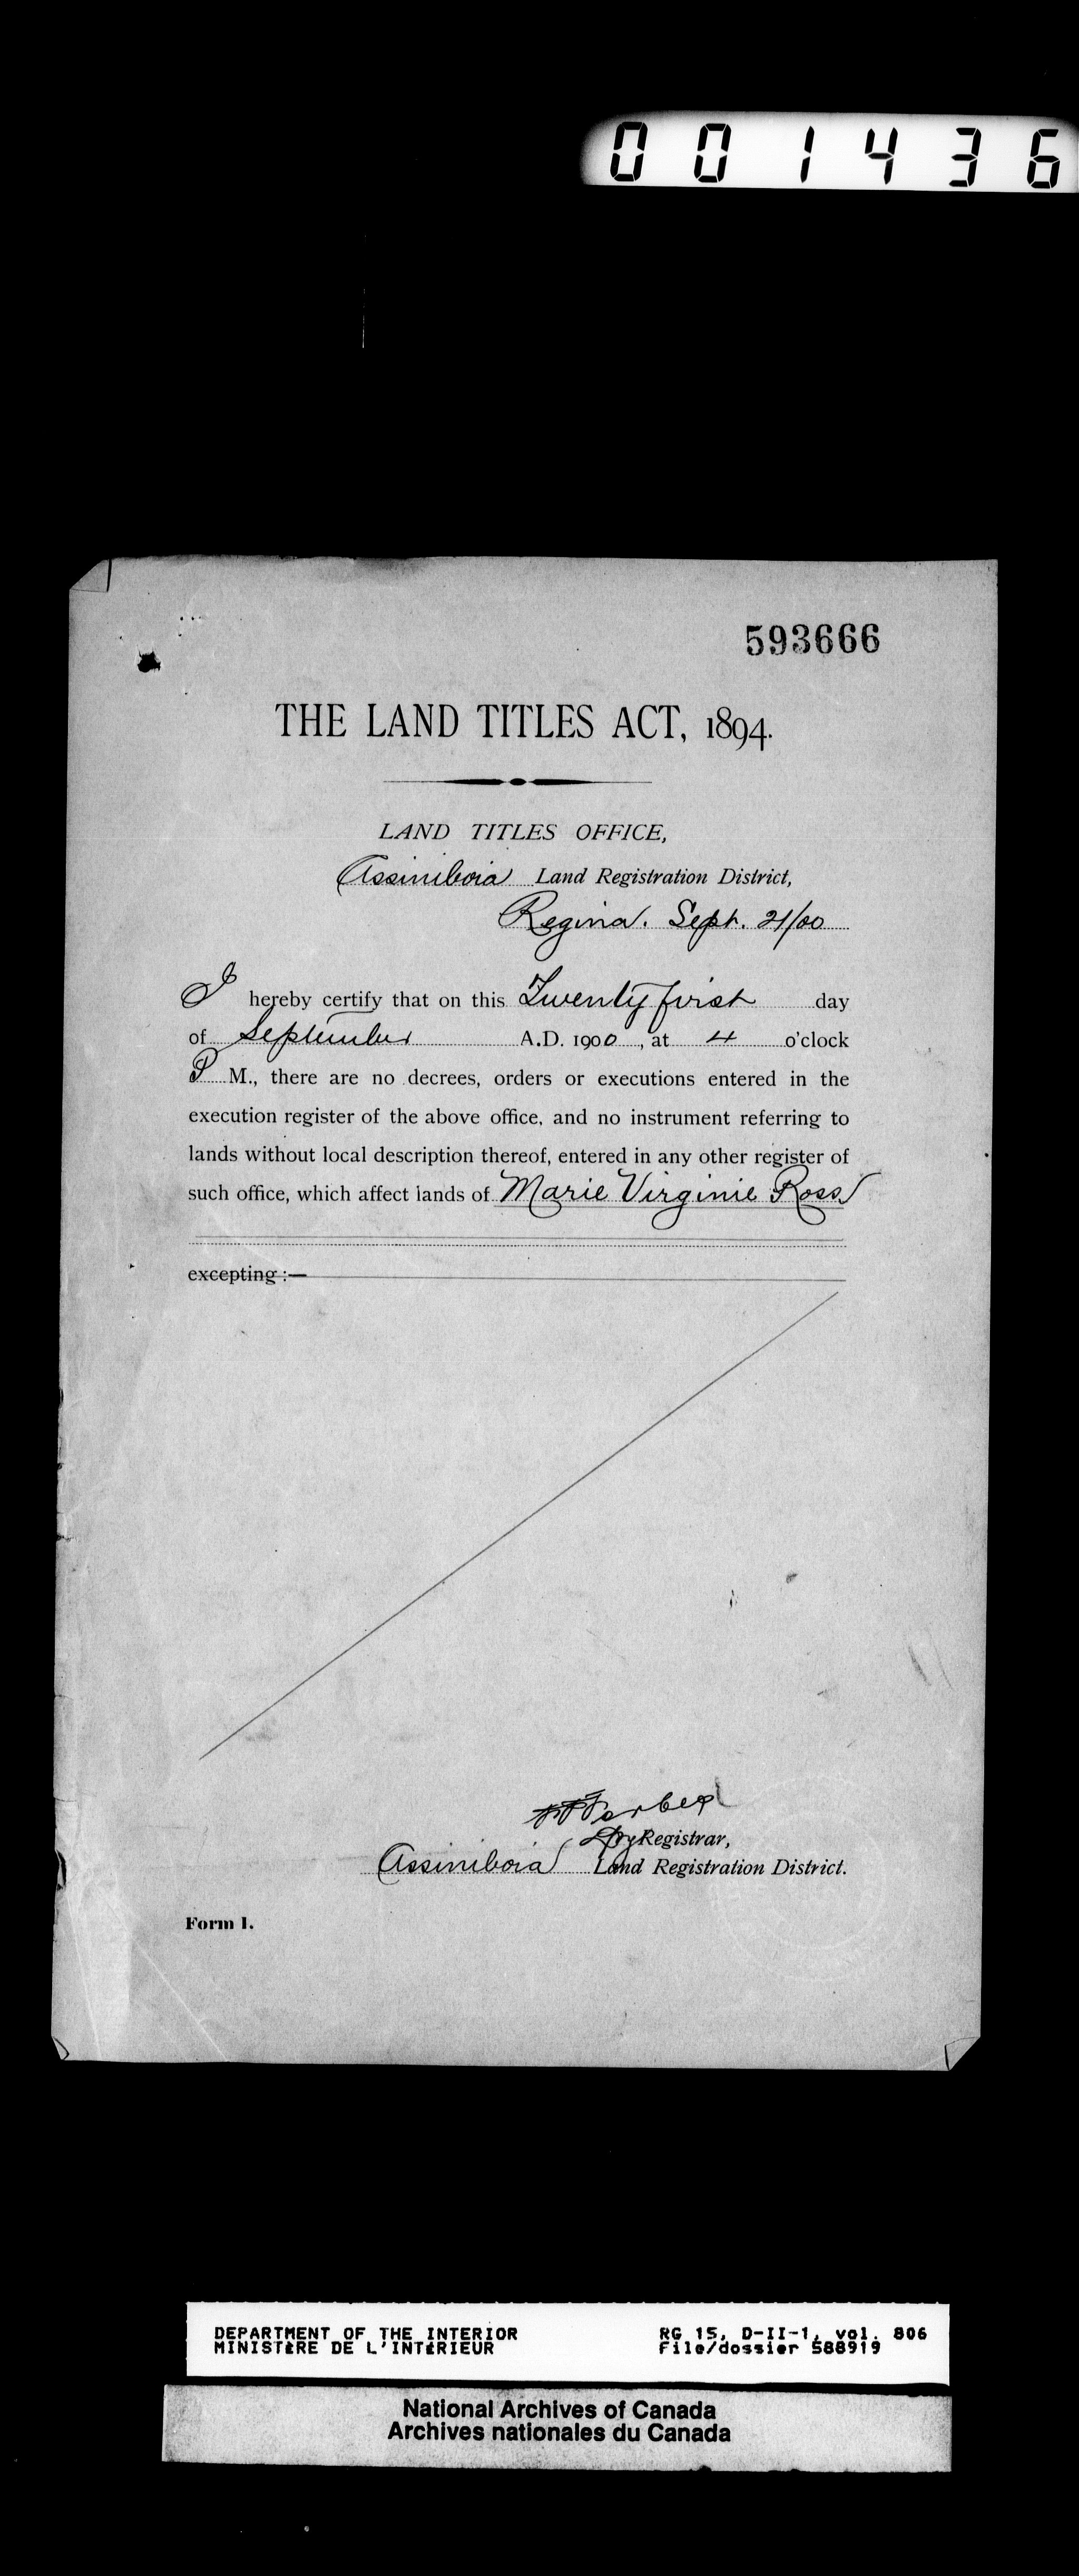 001436
593666
THE LAND TITLES ACT, 1894.
LAND TITLES OFFICE,
Assiniboia Land Registration District,
Regina. Sept. 21/00
I hereby certify that on this Twenty first day
of September A.D. 1900, at 4 o'clock
P M., there are no decrees, orders or executions entered in the
execution register of the above office, and no instrument referring to
lands without local description thereof, entered in any other register of
such office, which affect lands of Marie Virginie Ross
excepting :—
Dy Registrar,
Assiniboia Land Registration District.
Form 1.
DEPARTMENT OF THE INTERIOR RG 15, D-II-1, vol. 806
MINISTÈRE DE L'INTÉRIEUR File/dossier 588919
National Archives of Canada
Archives nationales du Canada